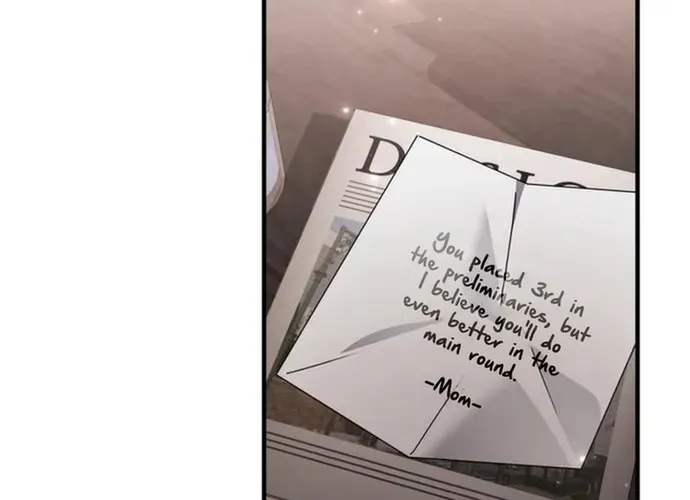 You placed 3rd in
the preliminaries, but
I believe you'll do
even better in the
main round.
-Mom-